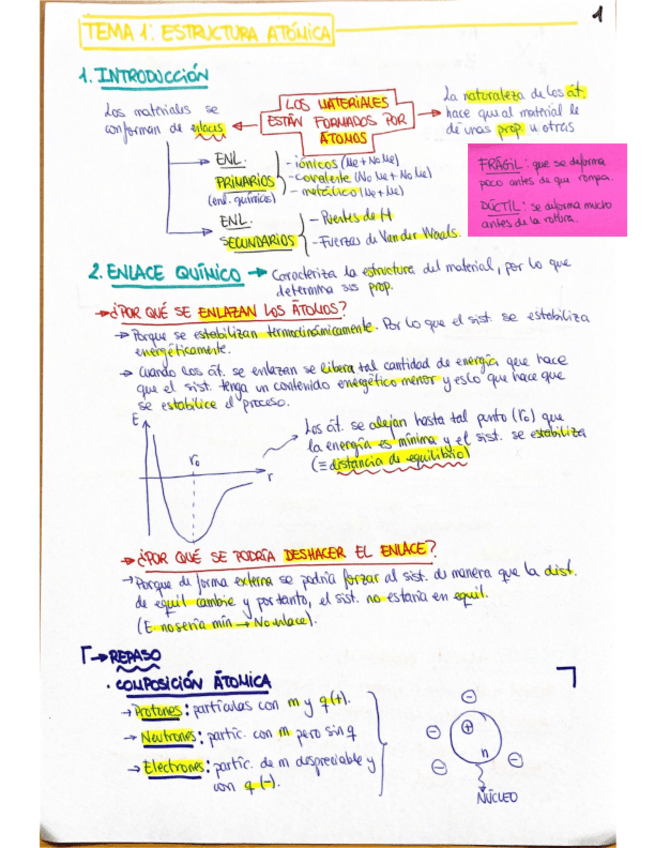 1
TEMA 1: ESTRUCTURA ATÓMICA
1. INTRODUCCIÓN
Los materiales se
conforman de enlaces
LOS MATERIALES
ESTÁN FORMADOS POR
ÁTOMOS
La naturaleza de los át.
hace que al material le
dé unas prop. u otras
→ ENL.
PRIMARIOS
(enl. químicos)
- iónicos (Me + No Me)
- covalente (No Me + No Me)
- metálico (Me + Me)
→ ENL.
SECUNDARIOS
- Puentes de H
- Fuerzas de Van der Waals.
FRÁGIL: que se deforma
poco antes de que rompa.
DÚCTIL: se deforma mucho
antes de la rotura.
2. ENLACE QUÍMICO → Caracteriza la estructura del material, por lo que
determina sus prop.
→ ¿POR QUÉ SE ENLAZAN LOS ÁTOMOS?
→ Porque se estabilizan termodinámicamente. Por lo que el sist. se estabiliza
energéticamente.
→ Cuando los át. se enlazan se libera tal cantidad de energía que hace
que el sist. tenga un contenido energético menor y eso lo que hace que
se estabilice el proceso.
E
r₀
r
Los át. se alejan hasta tal punto (r₀) que
la energía es mínima y el sist. se estabiliza
(≡ distancia de equilibrio)
→ ¿POR QUÉ SE PODRÍA DESHACER EL ENLACE?
→ Porque de forma externa se podría forzar al sist. de manera que la dist.
de equil cambie y por tanto, el sist. no estaría en equil.
(E no sería mín → No enlace).
→ REPASO
· COMPOSICIÓN ÁTOMICA
→ Protones: partículas con m y q(+).
→ Neutrones: partíc. con m pero sin q
→ Electrones: partíc. de m despreciable y
con q (-).
+
n
NÚCLEO